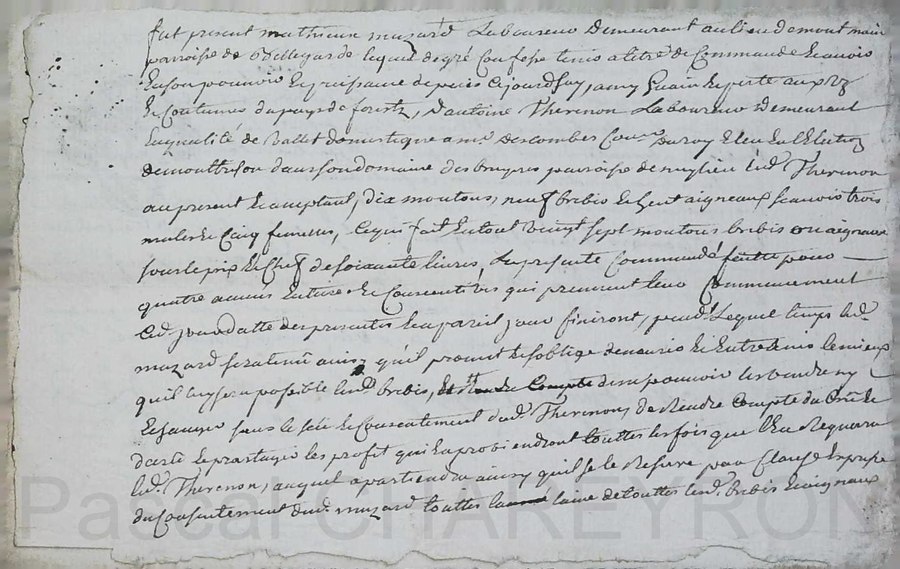 fut present mathieu muzard Laboureur demeurant au lieu de montmain
parroisse de Bellegarde lequel de gré Confesse tenir a titre de Commande Et avoir
En son pouvoir Et puissance depuis cejourdhuy, a my guain Et perte aux us
Et Coutumes du pays de foretz, d'antoine Thevenon Laboureur demeurant
En qualité de Vallet domestique a mr descombes Coner du roy Eleu En l'Election
de montbrison dans son domaine des bruyres parroisse de led. Thevenon
au present Et acceptant, dix moutons, neuf brebis Et huit aigneaux scavoir trois
males Et Cinq femelles, Ce qui fait En tout Vingt sept moutons brebis ou aigneaux
sous le prix Et Chef de soixante livres, La presente Commande faitte pour
quatre années Entieres Et Consecutives qui prennent leur Commencement
Ced. jour datte des presentes Et a pareil jour finiront, pendt Lequel temps led.
muzard sera tenu ainsy qu'il promet Et s'oblige de nourir Et Entretenir le mieux
qu'il luy sera possible lesd. brebis, de ne pouvoir les vendre ny
Echanger sans le sceu Et Consentement dud. Thevenon, de Rendre Compte du Croit Et
d'arté Et partager les profit qui En proviendront touttes les fois que l'En Requerra
led. Thevenon, auquel apartiendra ainsy qu'il se le Reserve par Clause Expresse
du Consentement dud. muzard touttes la laine de touttes lesd. brebis Et aigneaux
Pascal CHAREYRON